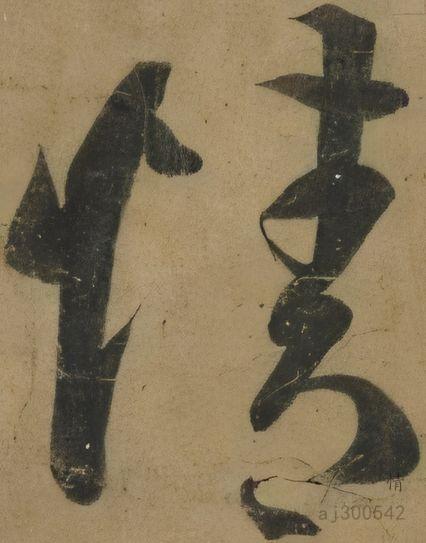 情
情
aj300542